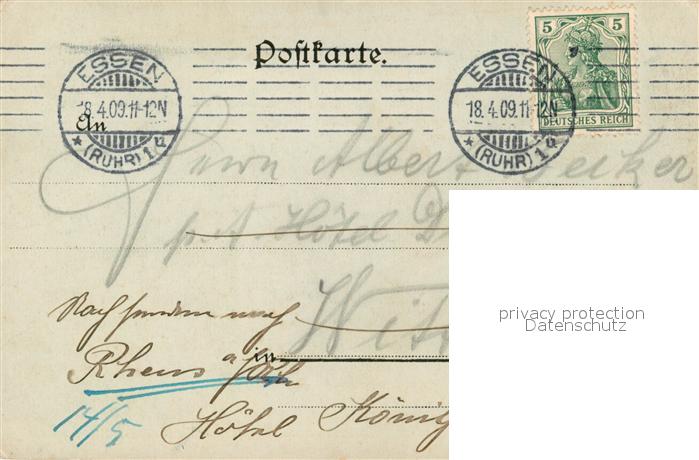 Postkarte.
ESSEN
18.4.09.11-12N
* (RUHR) 1q
ESSEN
18.4.09.11-12N
* (RUHR) 1q
5 5
DEUTSCHES REICH
An
Herrn Albert Becker
p. A. Hôtel
Nachsenden nach
Witt
in
Rhens a/
14/5
Hôtel König
privacy protection
Datenschutz